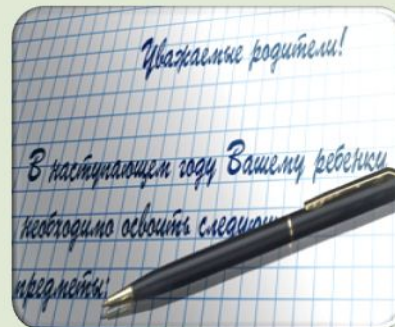 Уважаемые родители!
В наступающем году Вашему ребенку
необходимо освоить
предметы: